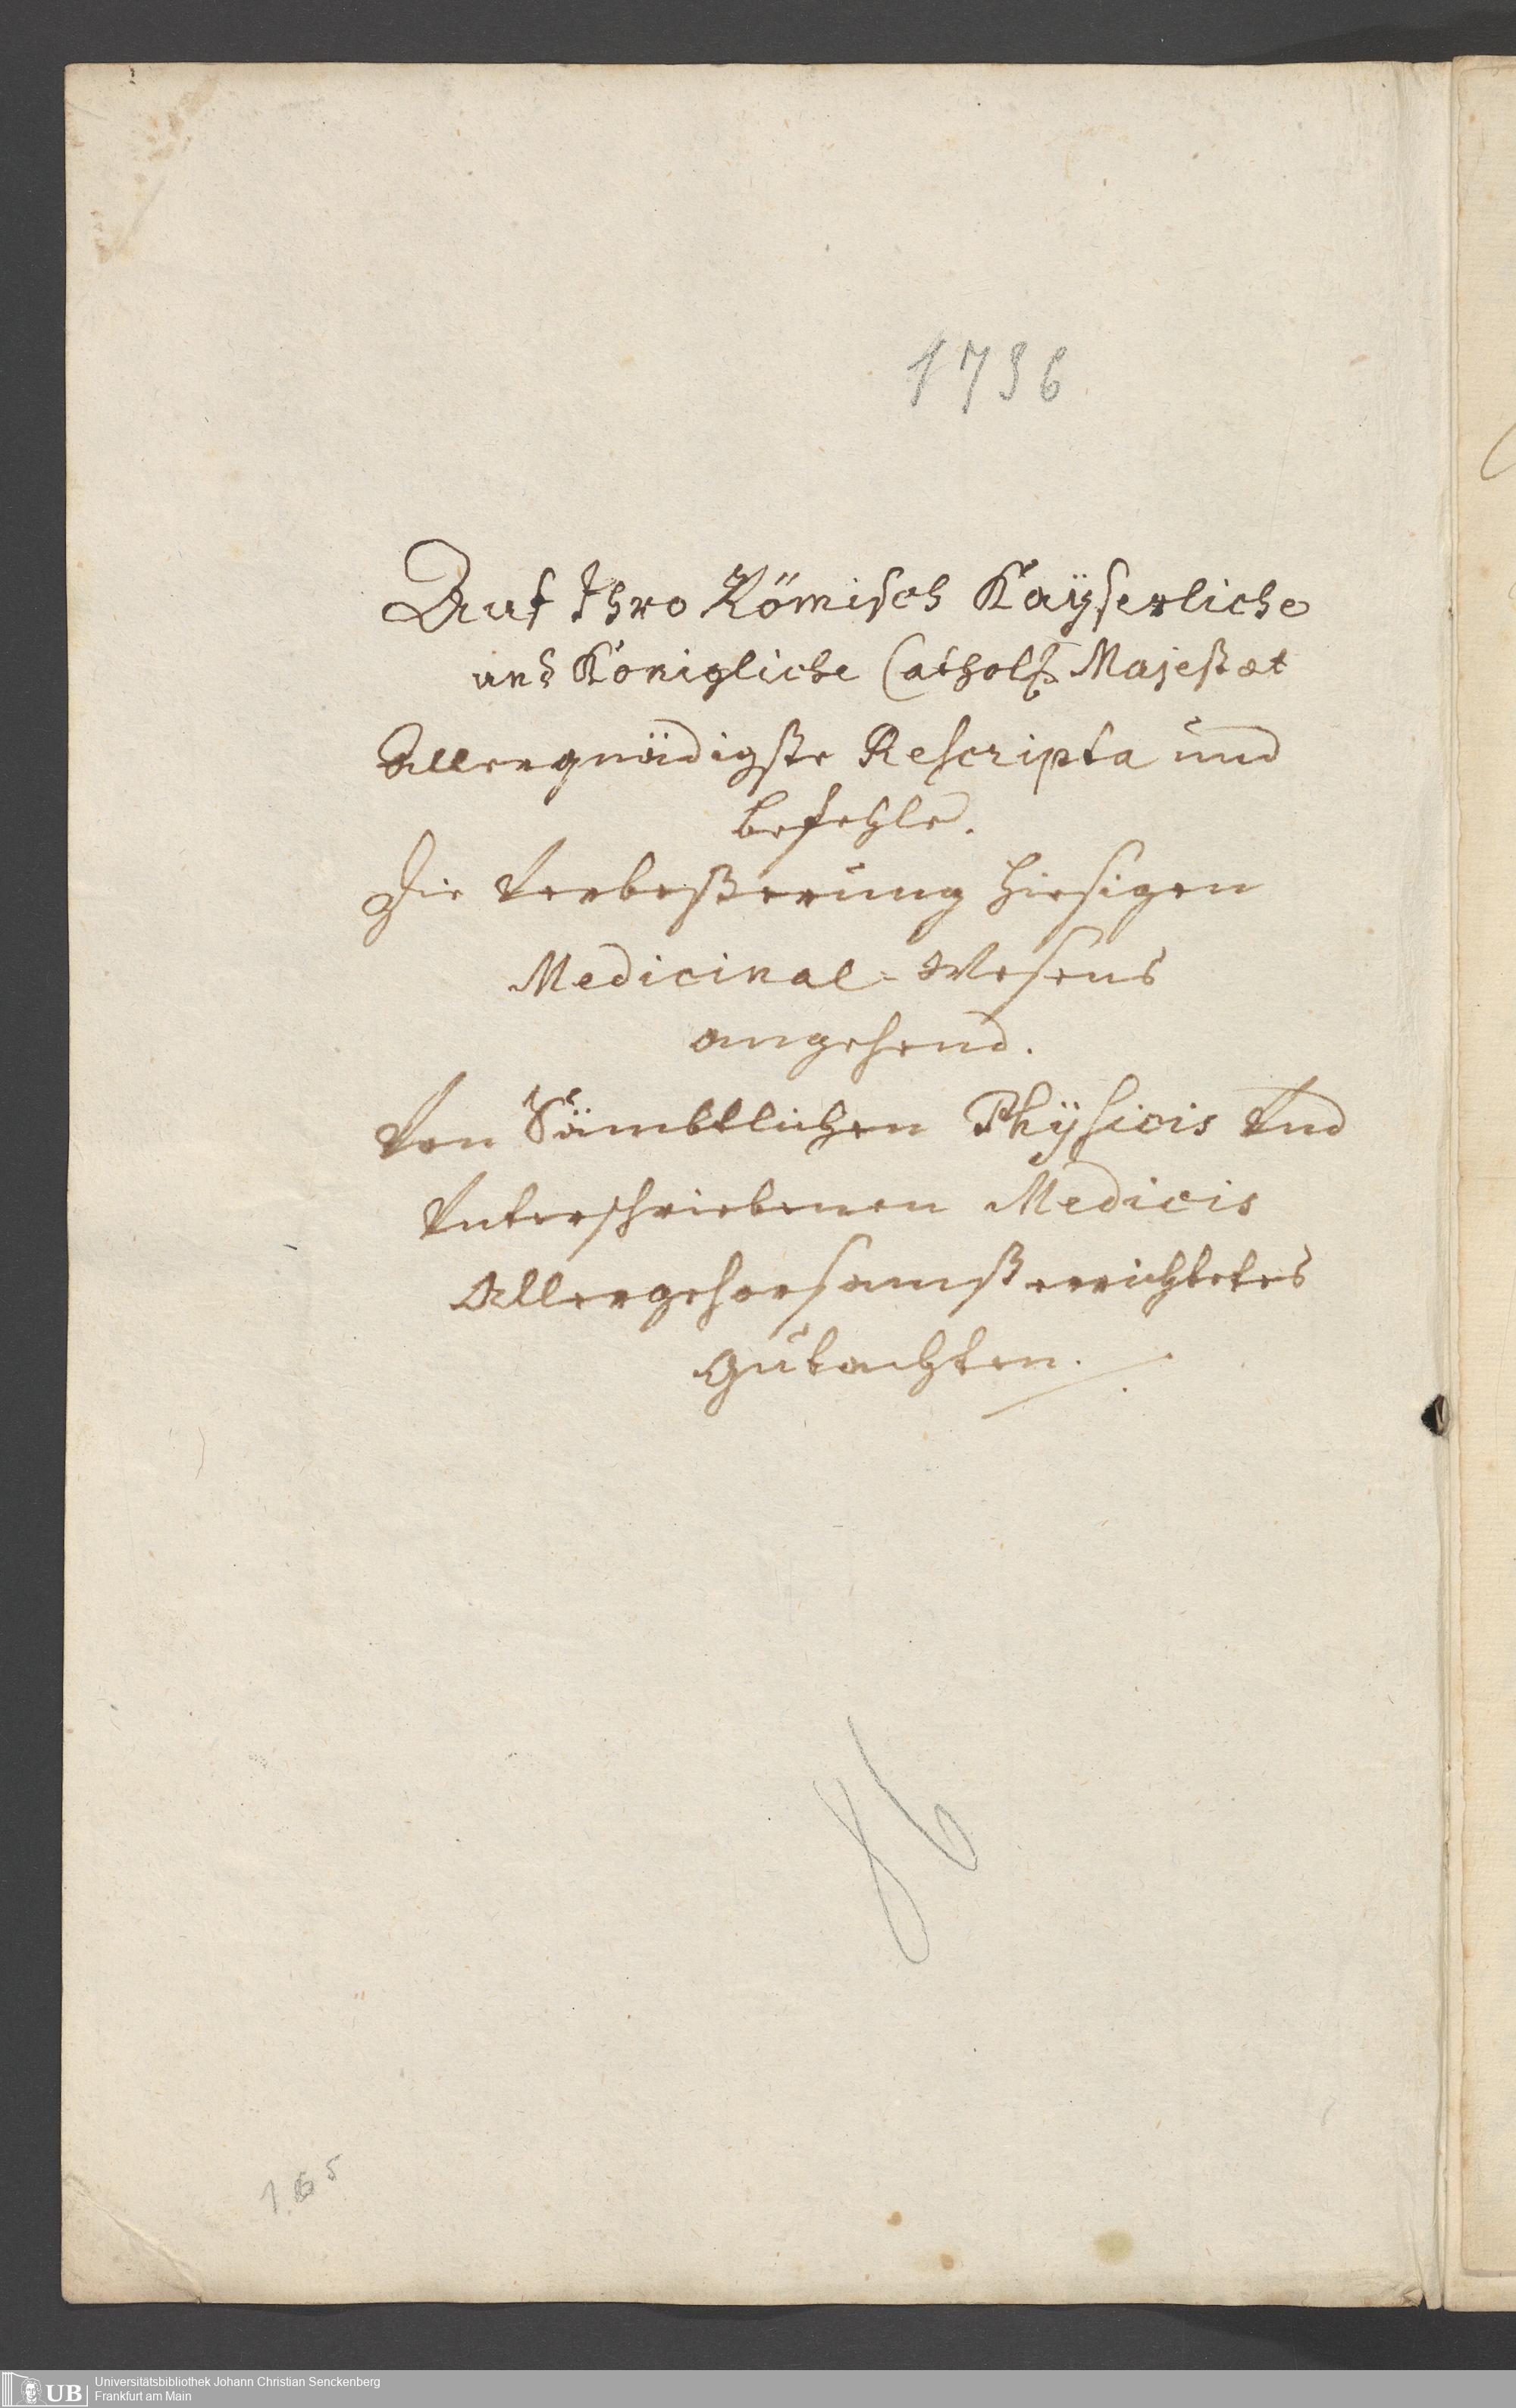 1736
Auf Ihro Römisch Kaÿserliche
und Königliche Cathol. Majestæt
Allergnädigste Rescripta und
befehle.
Die Verbeßerung hiesigen
Medicinal-Wesens
angehend.
Von Sämbtlichen Phÿsicis Vnd
Vnterschriebenen Medicis
Allergehorsamst errichtetes
Gutachten.
86
165
UB
Universitätsbibliothek Johann Christian Senckenberg
Frankfurt am Main